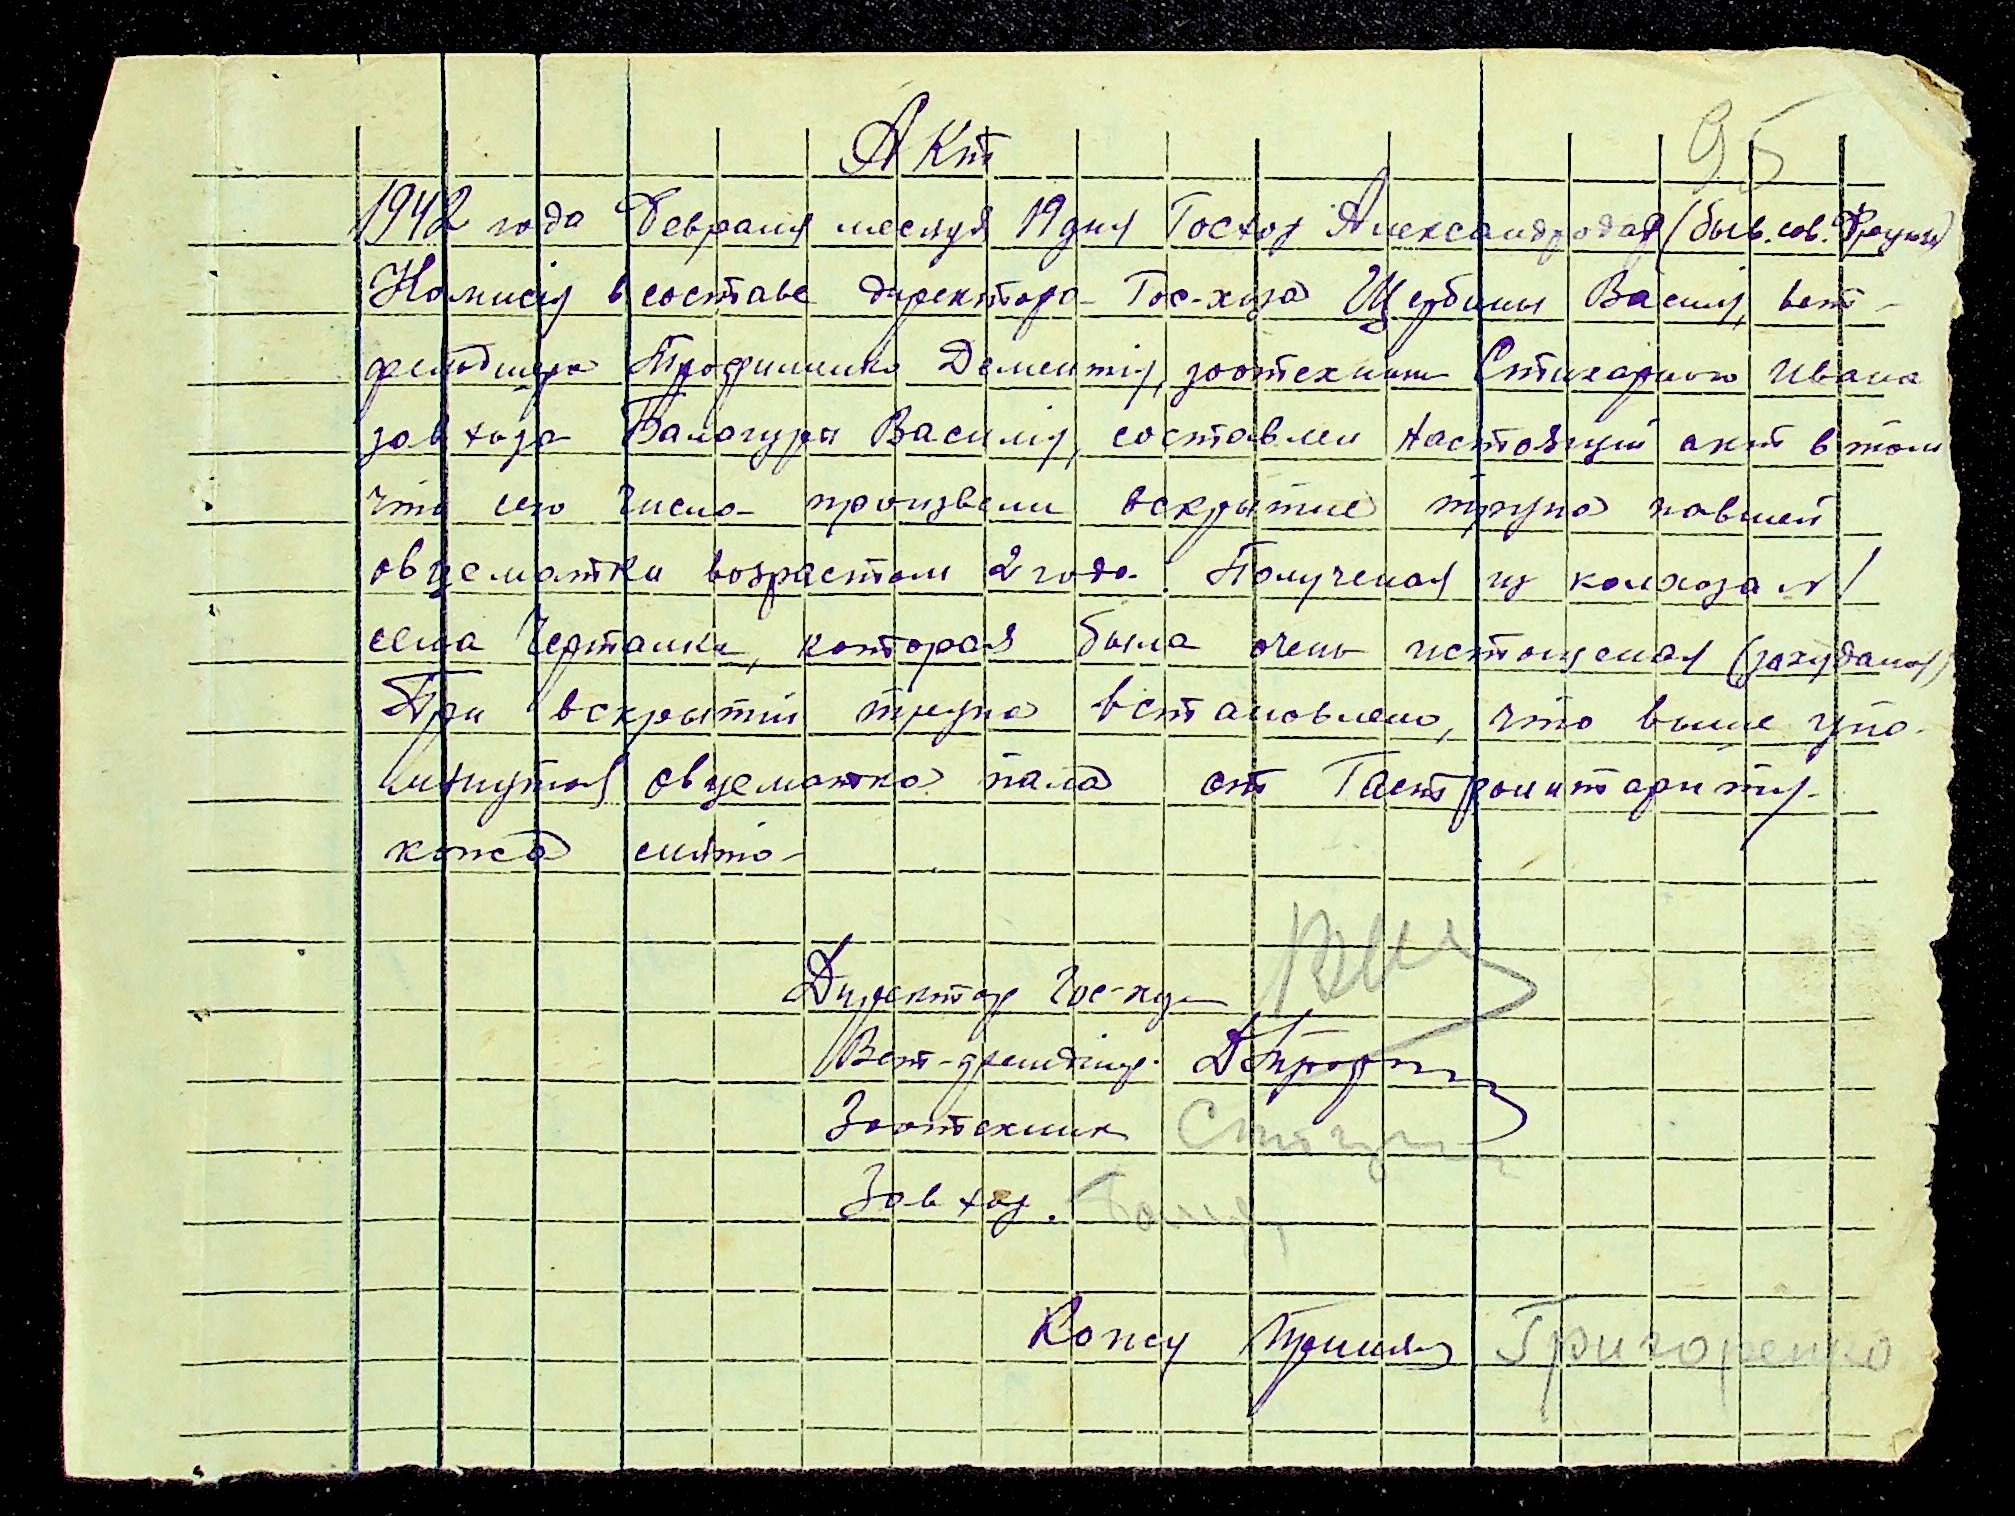 95
Акт
1942 года Февраля месяця 19 дня Госхоз Александродар (быв. сов. Фрунзе)
Комисия в составе директора Гос-хоза Щербины Василия, вет-
фельдшера Трофименко Дементия, зоотехника Стихарного Ивана
завхоза Балагуры Василия, составлен настоящий акт в том
что сего числа произвели вскрытие трупа павшей
овцематки возрастом 2 года. Полученая из колхоза № 1
села Черталки, которая была очень истощеная (захудалая)
При вскрытии трупа встановлено, что выше упо-
мянутая овцематка пала от Гастроинтариту
кожа снята
Директор Гос-хоза
Вет-фельдшер Д Троф
Зоотехник
Завхоз.
Кожу принял Григоренко